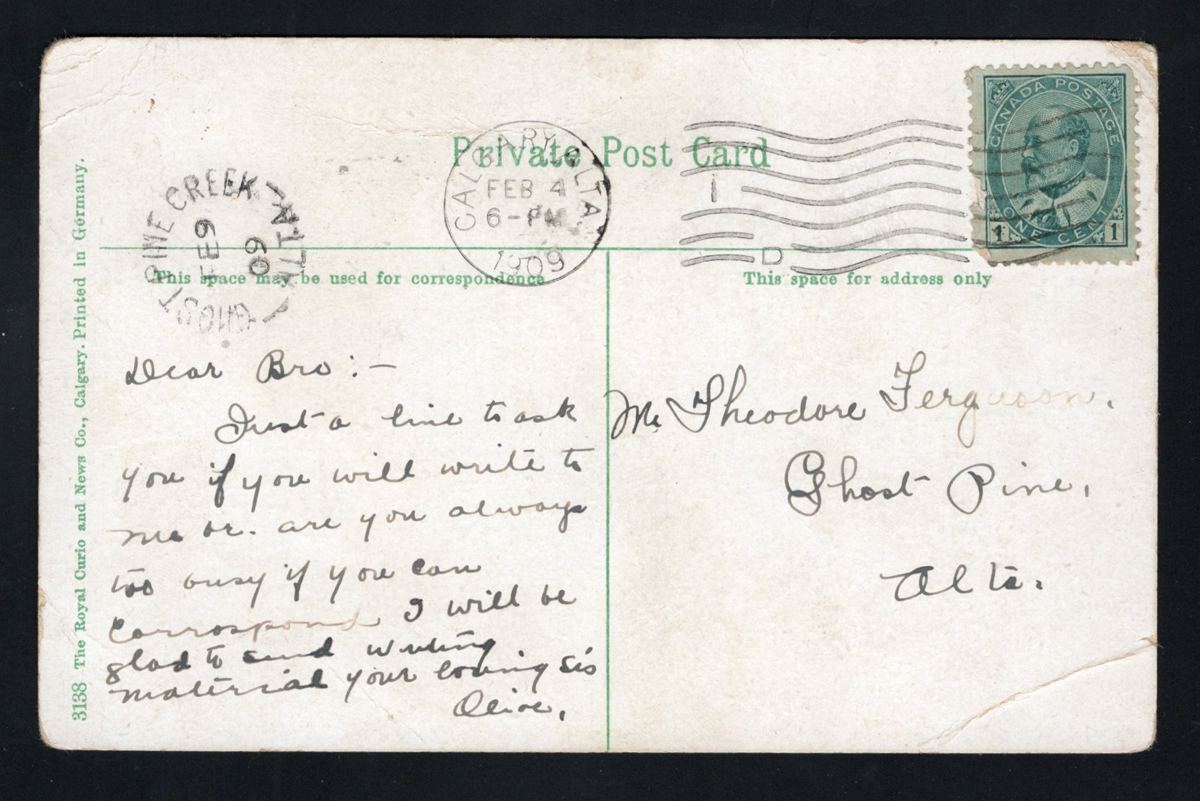 Private Post Card
CANADA POSTAGE
1 ONE CENT 1
CALGARY ALTA.
FEB 4
6-PM
1909
GHOST PINE CREEK ALTA
FE 9
09
I
D
This space may be used for correspondence
This space for address only
Dear Bro:-
Just a line to ask
you if you will write to
me or. are you always
too busy if you can
Corrospond I will be
glad to send writing
material your loving sis
Olive,
Mr Theodore Ferguson.
Ghost Pine,
Alta.
3138 The Royal Curio and News Co., Calgary. Printed in Germany.